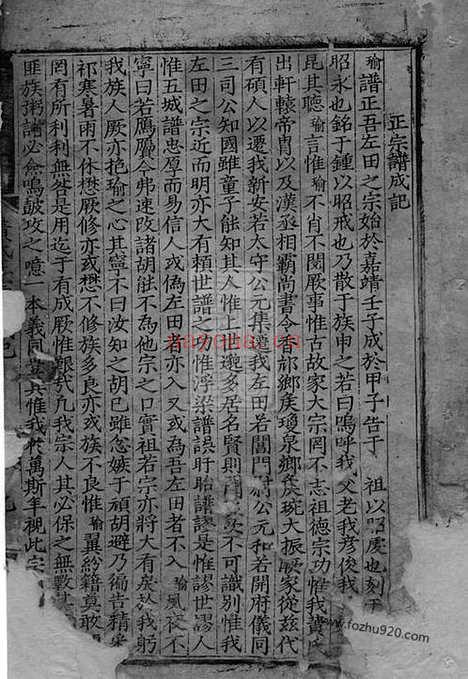 正宗譜成記
瑜譜正吾左田之宗始於嘉靖壬子成於甲子告于 祖以昭慶也刻于
昭永也銘于鍾以昭戒也乃散于族申之若曰嗚呼我父老我彦俊我
昆其聽瑜言惟瑜不肖不閱厥事惟古故家大宗罔不志祖德宗功惟我黄
出軒轅帝冑以及漢丞相霸尚書令香邟鄉矦瓊泉鄉矦琬大振厥家從茲代
有碩人以遷我新安若太守公元集遷我左田若閶門尉公元和若開府儀同
三司公知國雖童子能知其人惟上世邈多居名賢則不可識别惟我
左田之宗近而明亦大有賴世譜之功惟浮梁譜誤盱眙譜謬是惟謬世謬人
惟五城譜忠厚而易信人或偽左田者亦入又或為吾左田者不入瑜夙夜不
寧曰若鴈贋今弗速改諸胡能不為他宗之口實祖若宗亦將大有戾於我躬
我族人厥亦抱瑜之心其寧不曰汝知之胡巳雖忽嫉于頑胡避乃徧告精采
祁寒暑雨不休懋厥修亦或懋不修族多良亦或族不良惟瑜翼紛籍真敢
罔有所利利無然是用迄于有成厥惟艱我凡我宗人其必保之無斁其
匪族粥譜必僉鳴鼓攻之噫一本義同惟我於萬斯年視此宗
www.fozhu920.com